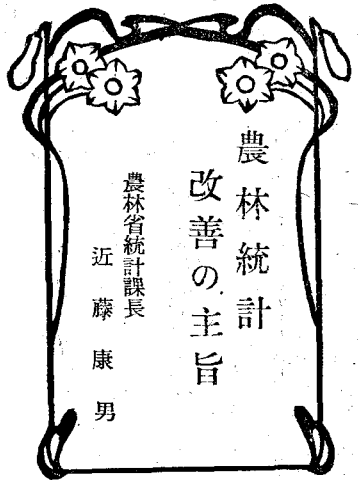 農林統計
改善の主旨
農林省統計課長
近藤康男